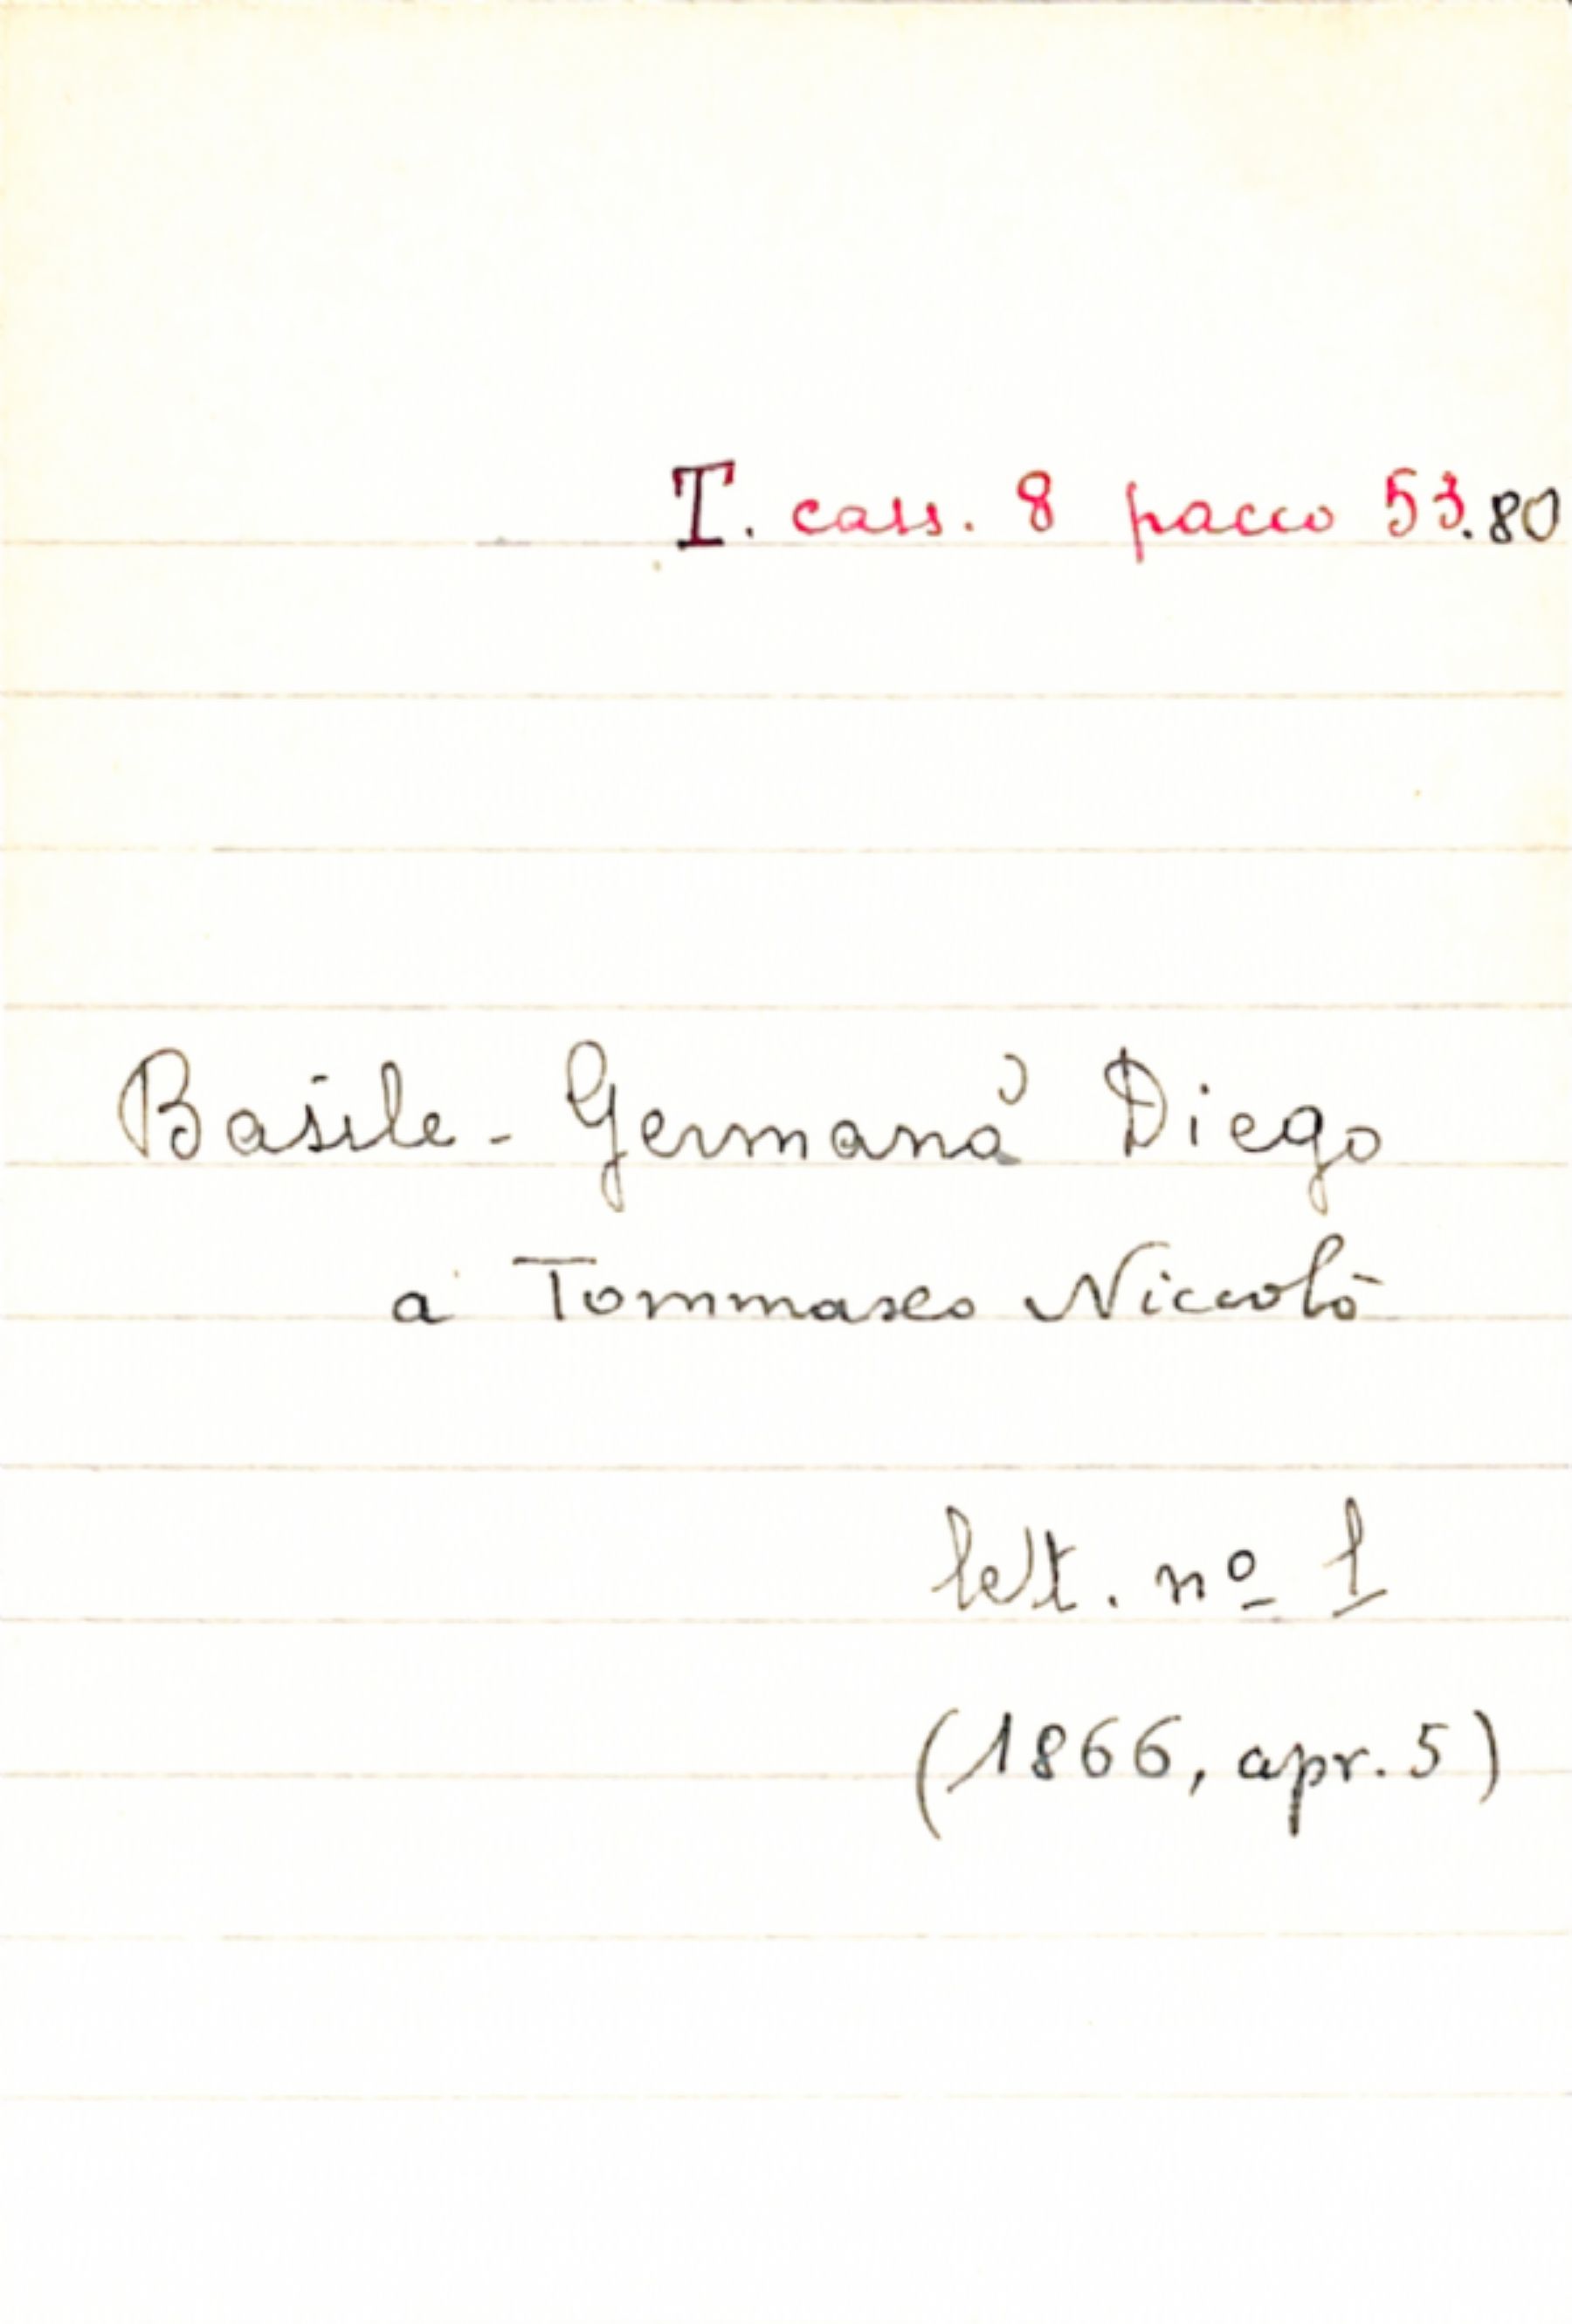 T. cass. 8 pacco 53.80
Basile-Germanà Diego
a Tommaseo Niccolò
lett. nº 1
(1866, apr. 5)